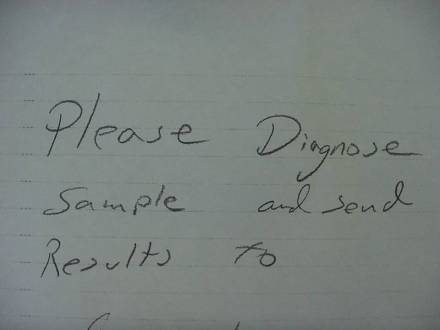 Please Diagnose
Sample and send
Results to